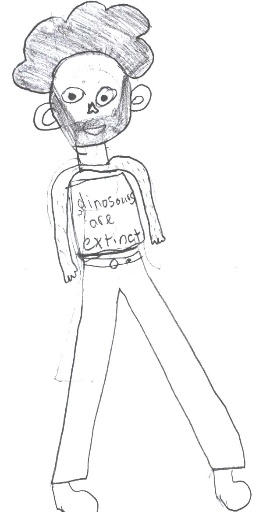 dinosaurs
are
extinct